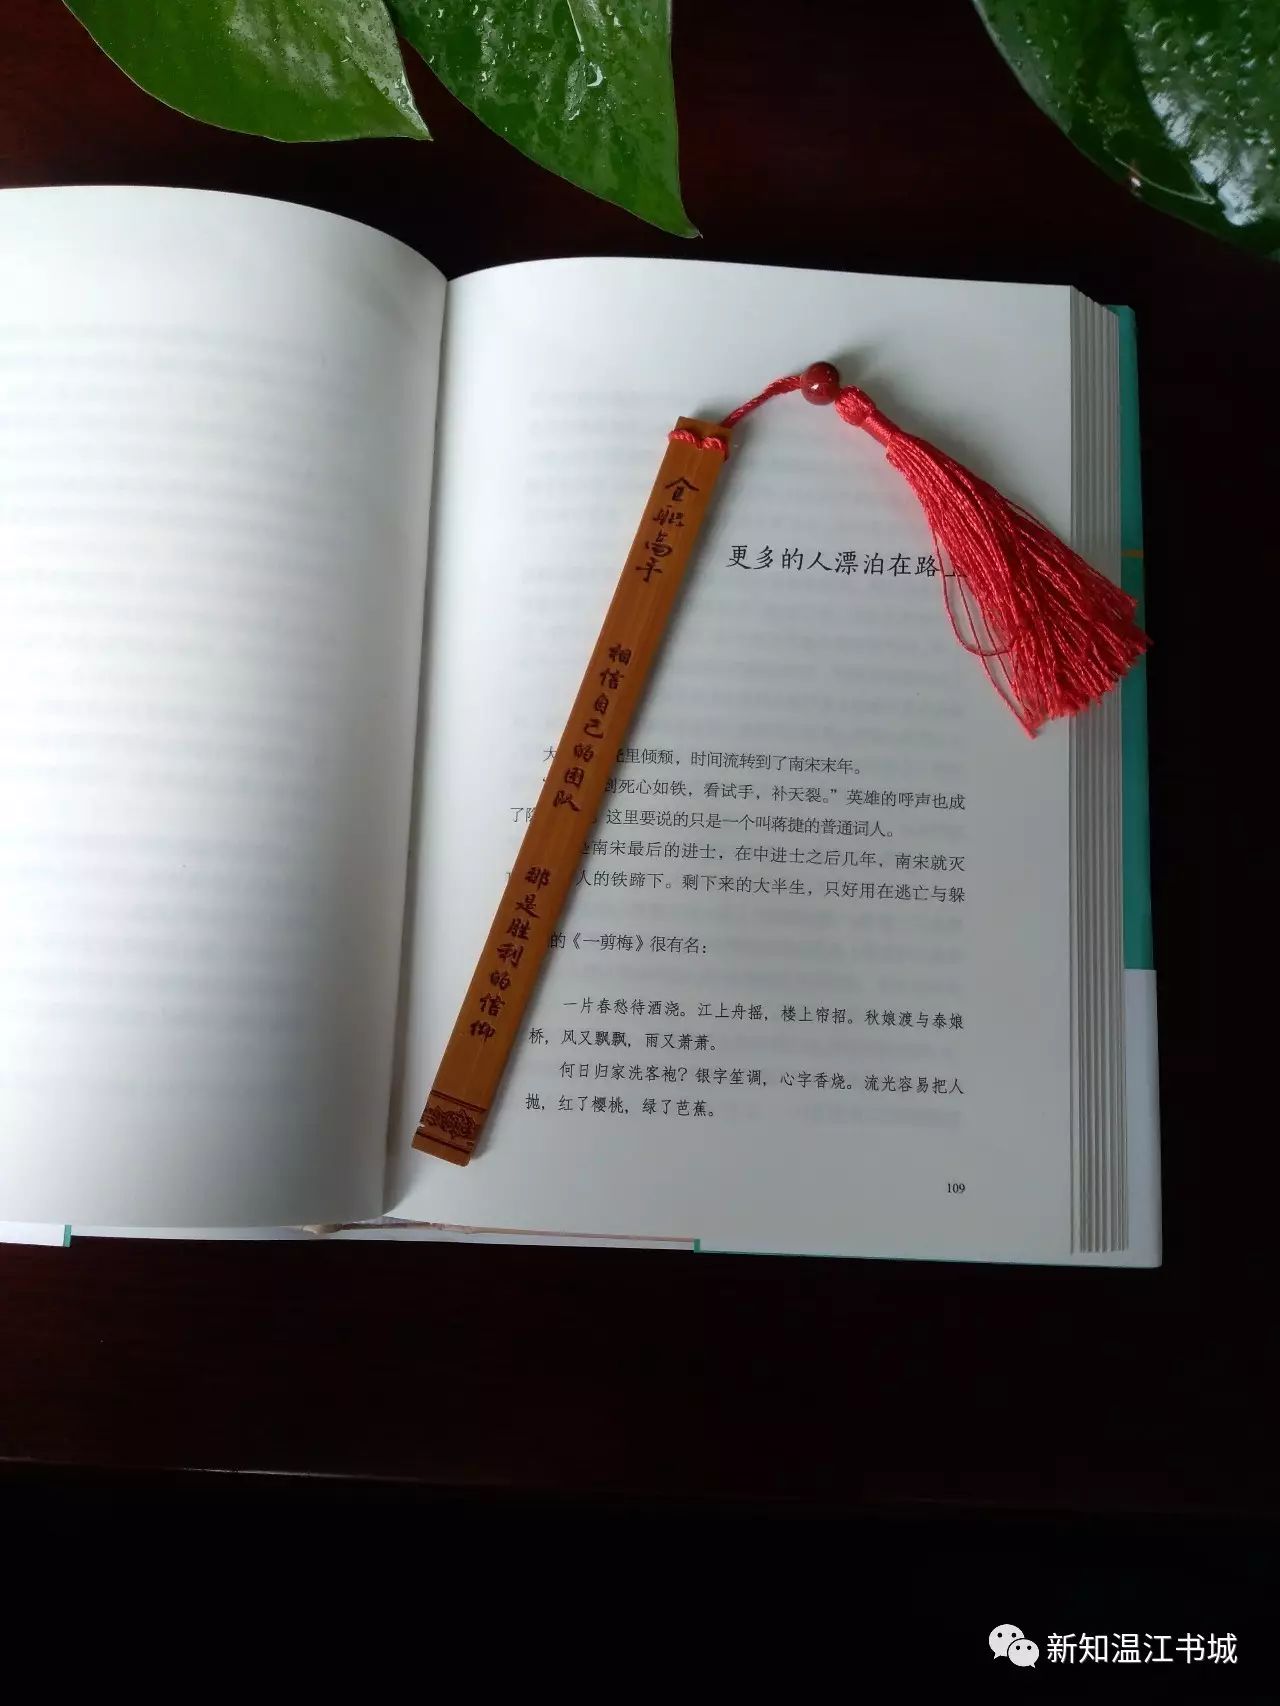 全职高手
相信自己的团队
那是胜利的信仰
更多的人漂泊在路上
大 里倾颓，时间流转到了南宋末年。
到死心如铁，看试手，补天裂。”英雄的呼声也成
了 。这里要说的只是一个叫蒋捷的普通词人。
是南宋最后的进士，在中进士之后几年，南宋就灭
人的铁蹄下。剩下来的大半生，只好用在逃亡与躲
的《一剪梅》很有名：
一片春愁待酒浇。江上舟摇，楼上帘招。秋娘渡与泰娘
桥，风又飘飘，雨又萧萧。
何日归家洗客袍？银字笙调，心字香烧。流光容易把人
抛，红了樱桃，绿了芭蕉。
109
新知温江书城